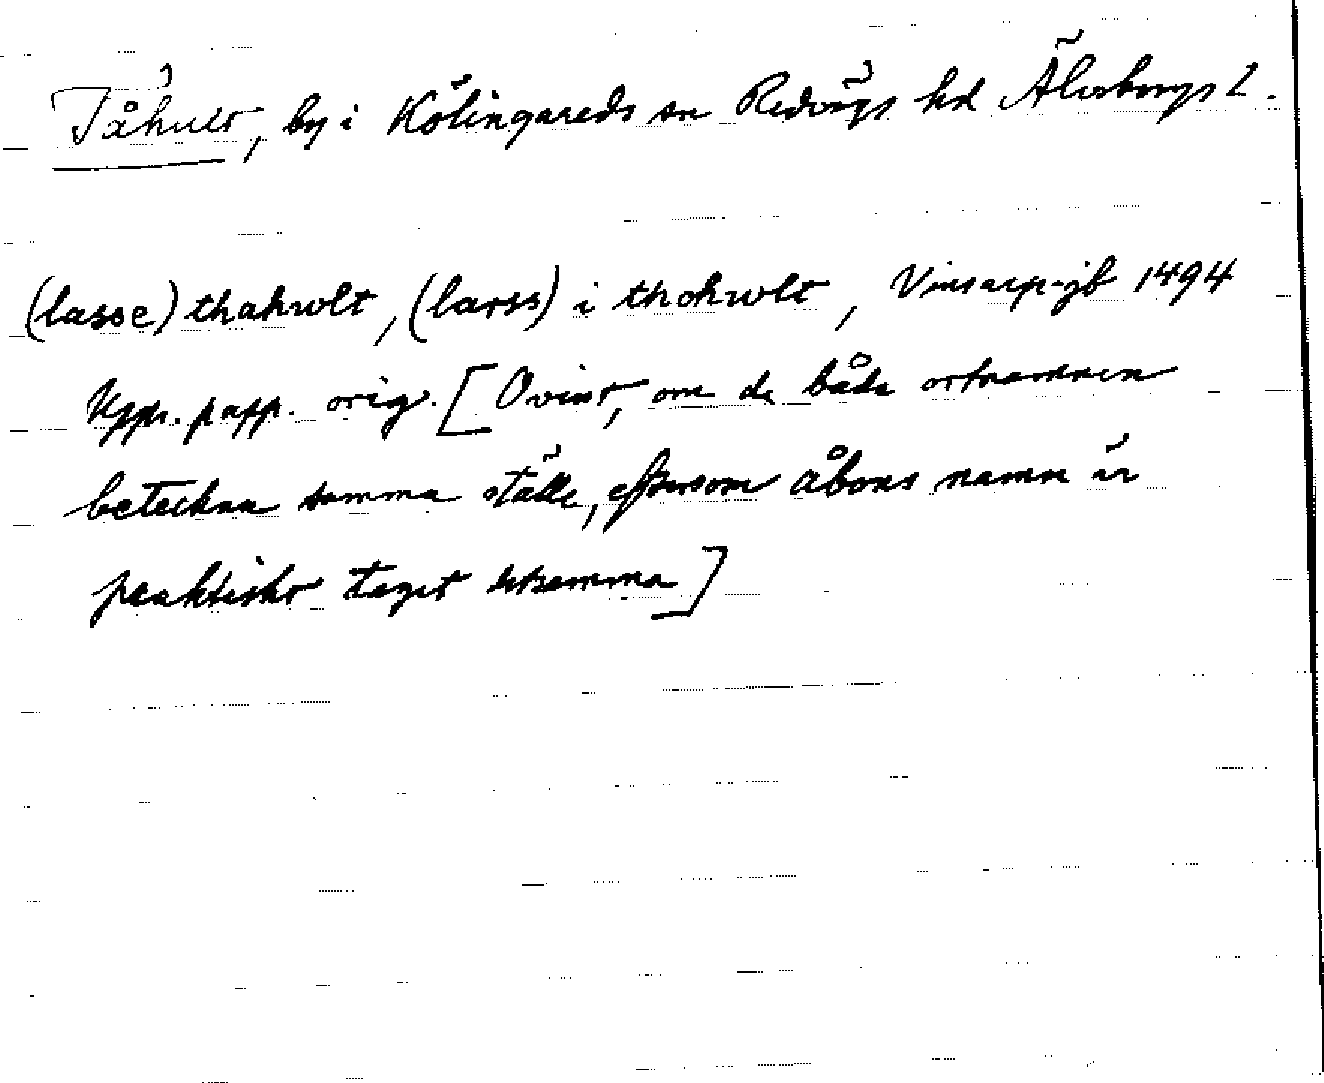 Tåhult, by i Kölingareds sn Redvägs hd Älvsborgs l.
(lasse) thahwlt, (larss) i thohwlt, Vinsarp-jb 1494
Upps. papp. orig. [Ovisst, om de båda ortnamnen
beteckna samma ställe, eftersom åbons namn är
praktiskt taget detsamma]